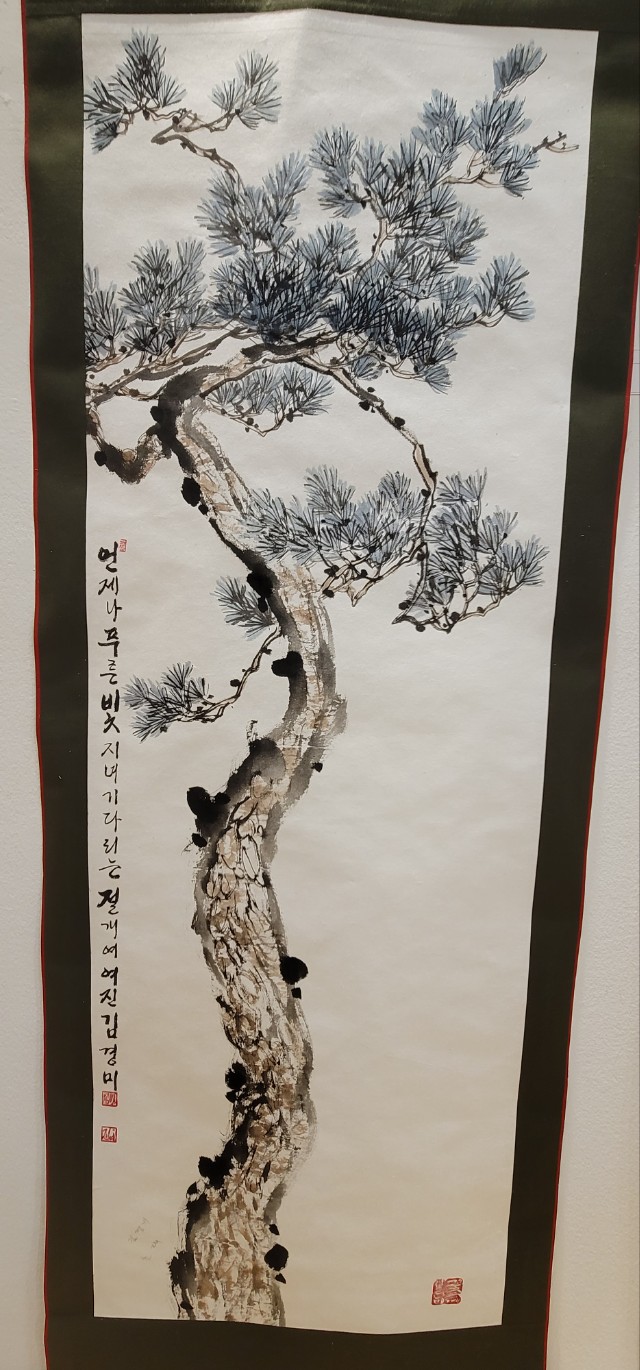 언제나 푸른 빛 지내 기다리는 절개여 여진 김경미